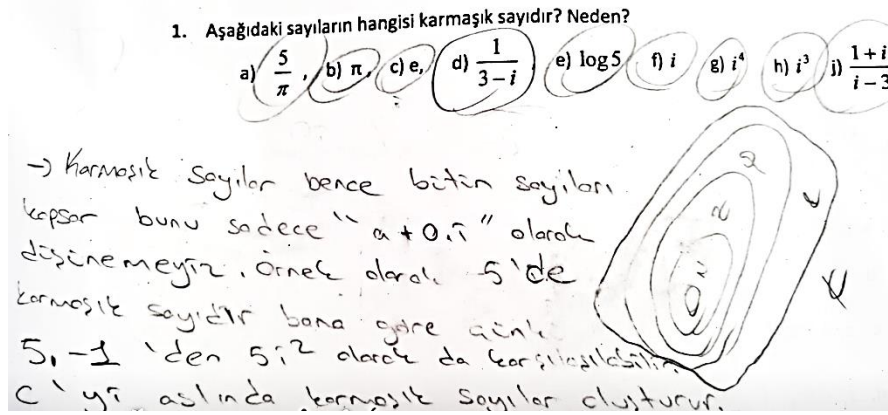 1. Aşağıdaki sayıların hangisi karmaşık sayıdır? Neden?
a) 5/π , b) π, c) e, d) 1/(3−i) e) log5 f) i g) i⁴ h) i³ j) (1+i)/(i−3
→) Karmaşık Sayılar bence bütün sayıları
kapsar bunu sadece "a+0.i" olarak
düşünemeyiz. Örnek olarak 5'de
karmaşık sayıdır bana göre çünkü
5.-1 'den 5i² olarak da karşılaşılabilir
C'yi aslında karmaşık sayılar oluşturur.